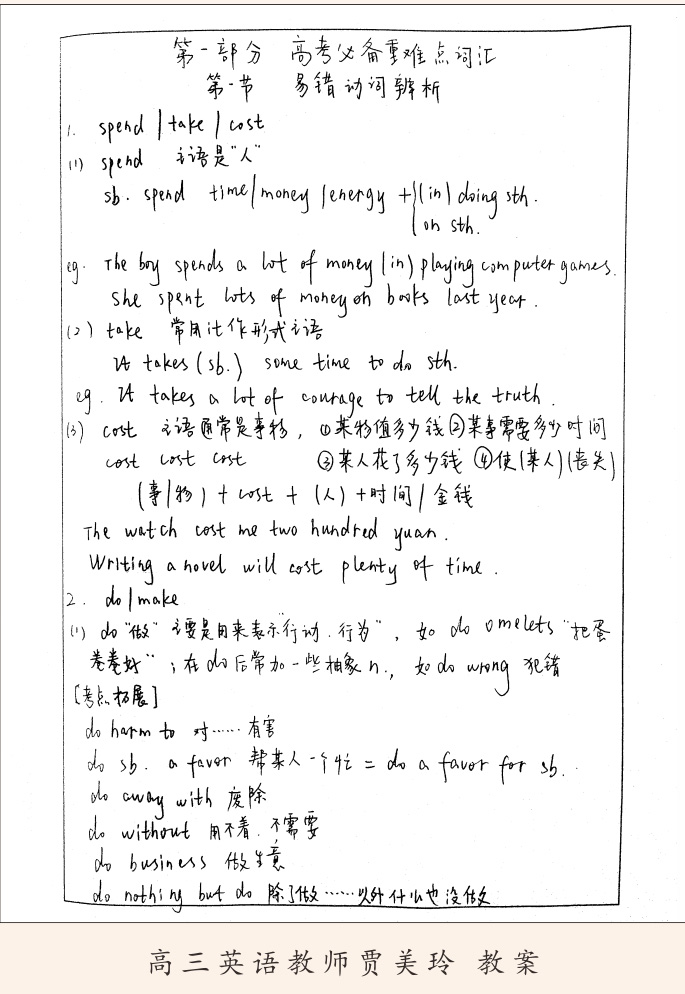 第一部分 高考必备重难点词汇
第一节 易错动词辨析
1. spend / take / cost
(1) spend 主语是"人"
sb. spend time / money / energy + (in) doing sth.
on sth.
eg. The boy spends a lot of money (in) playing computer games.
She spent lots of money on books last year.
(2) take 常用it作形式主语
It takes (sb.) some time to do sth.
eg. It takes a lot of courage to tell the truth.
(3) cost 主语通常是事物, ①某物值多少钱②某事需要多少时间
cost cost cost ③某人花了多少钱 ④使(某人)(丧失)
(事/物) + cost + (人) + 时间 / 金钱
The watch cost me two hundred yuan.
Writing a novel will cost plenty of time.
2. do / make
(1) do "做" 主要是用来表示"行动、行为", 如 do omelets "把蛋
卷卷好"; 在 do 后常加一些抽象 n., 如 do wrong 犯错
[考点拓展]
do harm to 对……有害
do sb. a favor 帮某人一个忙 = do a favor for sb.
do away with 废除
do without 用不着、不需要
do business 做生意
do nothing but do 除了做……以外什么也没做
高三英语教师贾美玲 教案